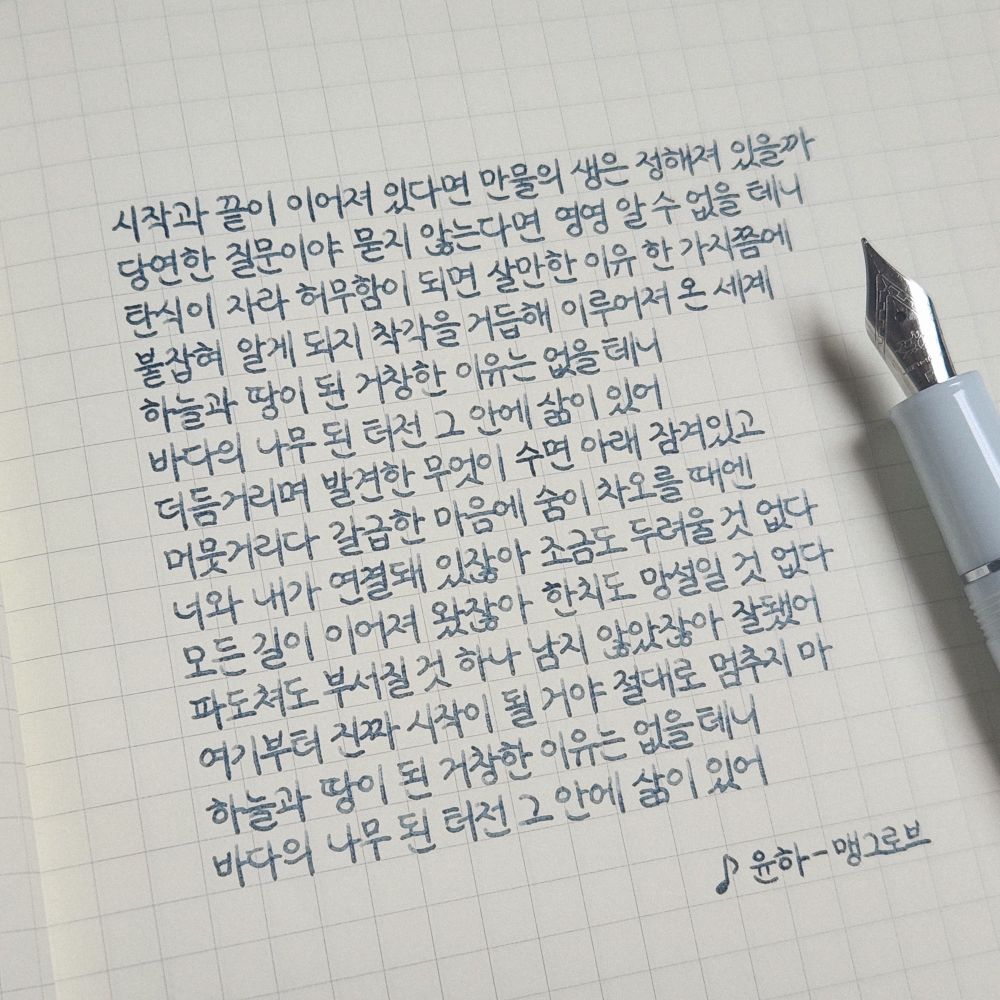 시작과 끝이 이어져 있다면 만물의 생은 정해져 있을까
당연한 질문이야 묻지 않는다면 영영 알 수 없을 테니
탄식이 자라 허무함이 되면 살만한 이유 한 가지쯤에
붙잡혀 알게 되지 착각을 거듭해 이루어져 온 세계
하늘과 땅이 된 거창한 이유는 없을 테니
바다의 나무 된 터전 그 안에 삶이 있어
더듬거리며 발견한 무엇이 수면 아래 잠겨있고
머뭇거리다 갈급한 마음에 숨이 차오를 때엔
너와 내가 연결돼 있잖아 조금도 두려울 것 없다
모든 길이 이어져 왔잖아 한치도 망설일 것 없다
파도쳐도 부서질 것 하나 남지 않았잖아 잘됐어
여기부터 진짜 시작이 될 거야 절대로 멈추지 마
하늘과 땅이 된 거창한 이유는 없을 테니
바다의 나무 된 터전 그 안에 삶이 있어
♪ 윤하-맹그로브